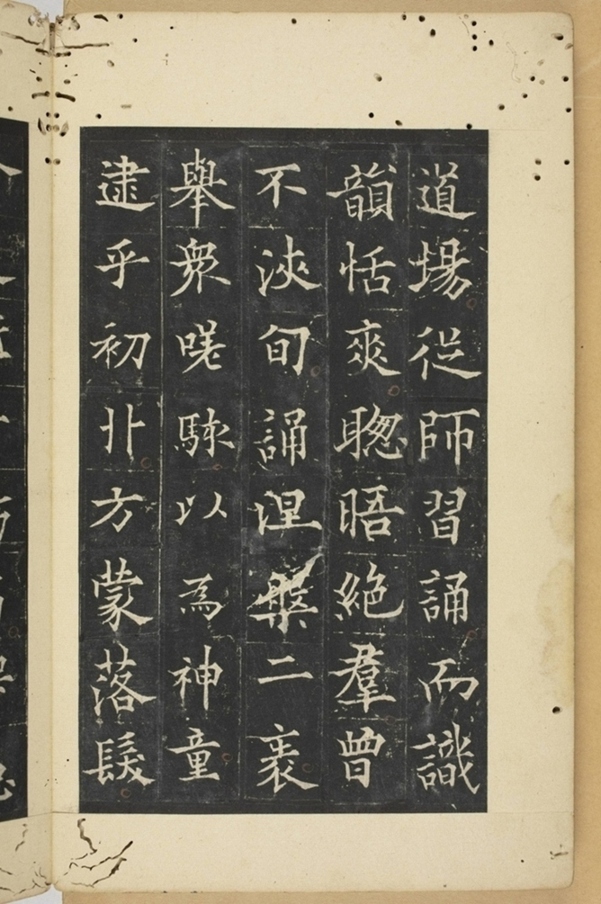 道場從師習誦而識
韻恬爽聦晤絕羣曾
不浹旬誦涅槃二袠
舉衆嗟駭以為神童
逮乎初丱方蒙落髮